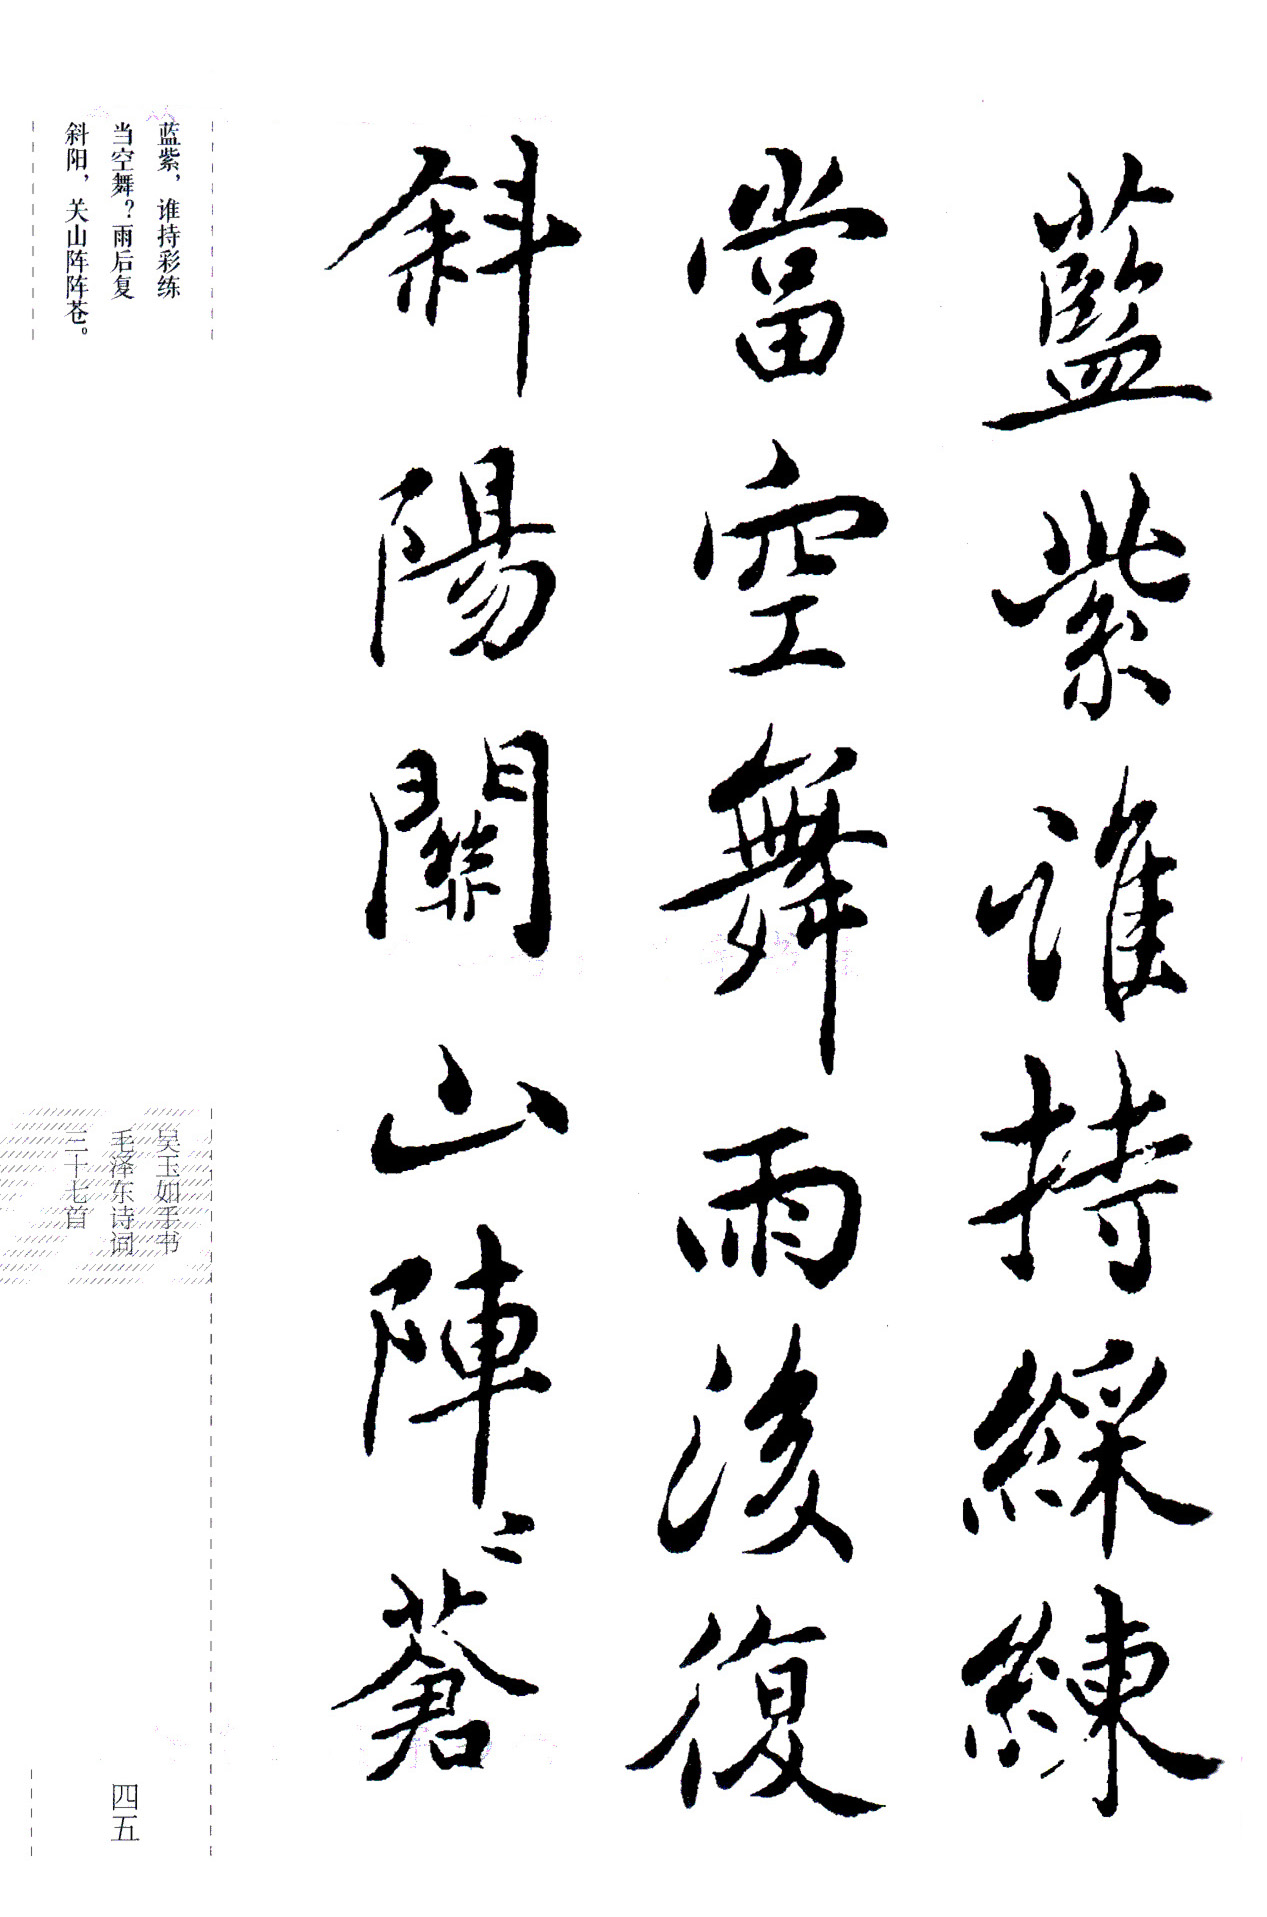 藍紫誰持綵練
當空舞雨後復
斜陽關山陣〻蒼
蓝紫，谁持彩练
当空舞？雨后复
斜阳，关山阵阵苍。
吴玉如手书
毛泽东诗词
三十七首
四五